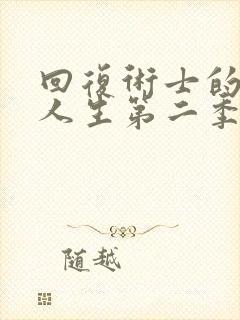 回復術士的
人生第二季
随越